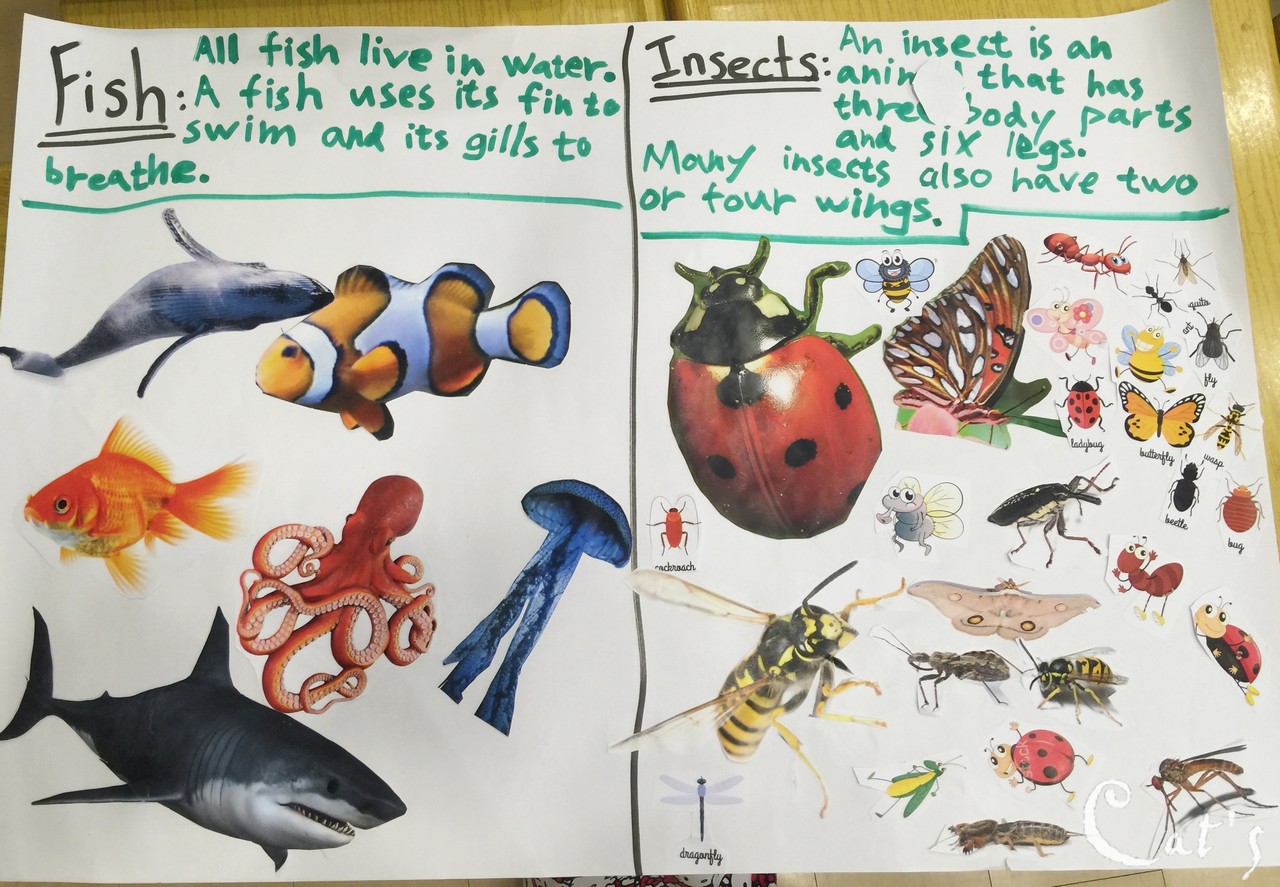 Fish:
All fish live in water.
A fish uses its fin to
swim and its gills to
breathe.
Insects:
An insect is an
that has
body parts
and six legs.
Many insects also have two
or four wings.
quito
ant
fly
ladybug
butterfly
wasp
beetle
bug
cockroach
dragonfly
Cat's